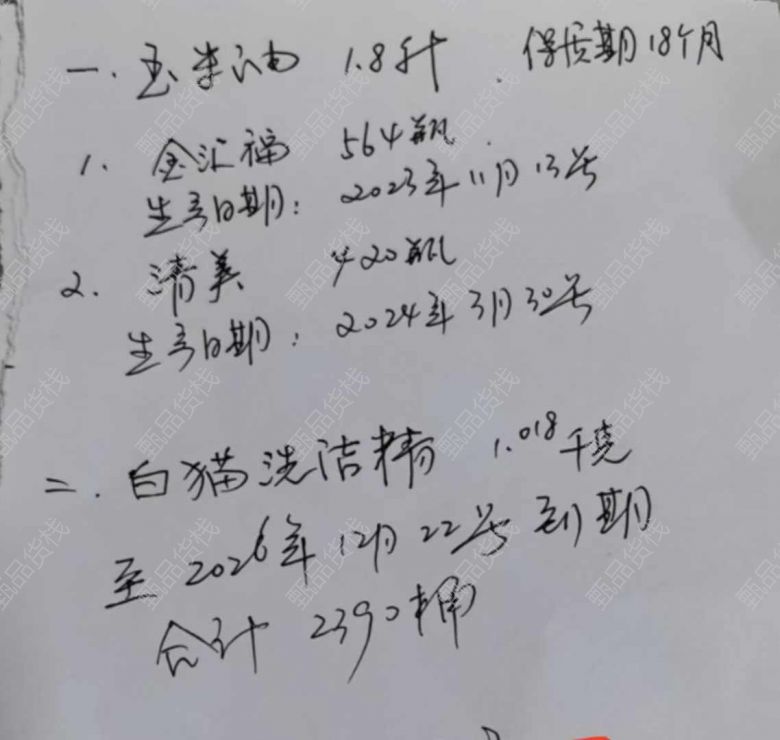 一. 玉米油 1.8升. 保质期18个月
1. 金汇福 564瓶.
生产日期: 2023年11月13号
2. 清美 420瓶
生产日期: 2024年3月30号
二. 白猫洗洁精 1.018千克
至2026年12月22号到期
合计 2390桶
甄品货栈